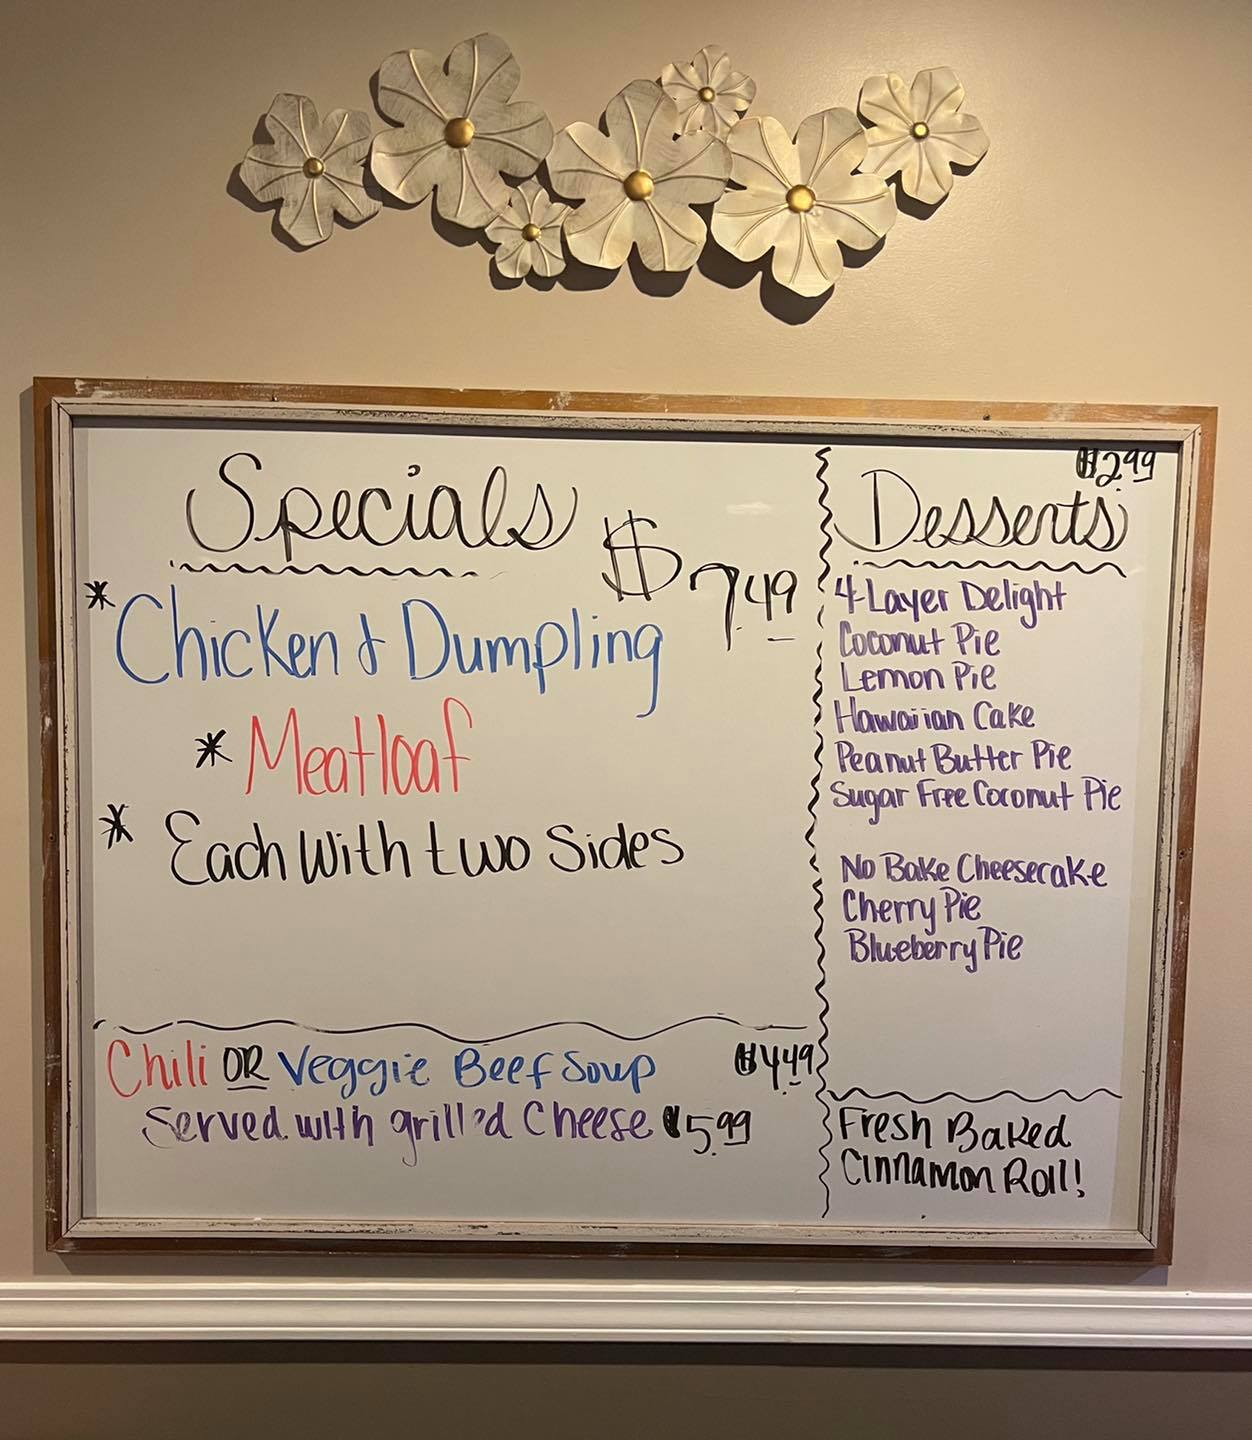 Specials
$7.49
* Chicken & Dumpling
* Meatloaf
* Each With two Sides
Chili OR Veggie Beef Soup $4.49
Served with grilled Cheese $5.99
$2.99
Desserts
4-Layer Delight
Coconut Pie
Lemon Pie
Hawaiian Cake
Peanut Butter Pie
Sugar Free Coconut Pie
No Bake Cheesecake
Cherry Pie
Blueberry Pie
Fresh Baked
Cinnamon Roll!